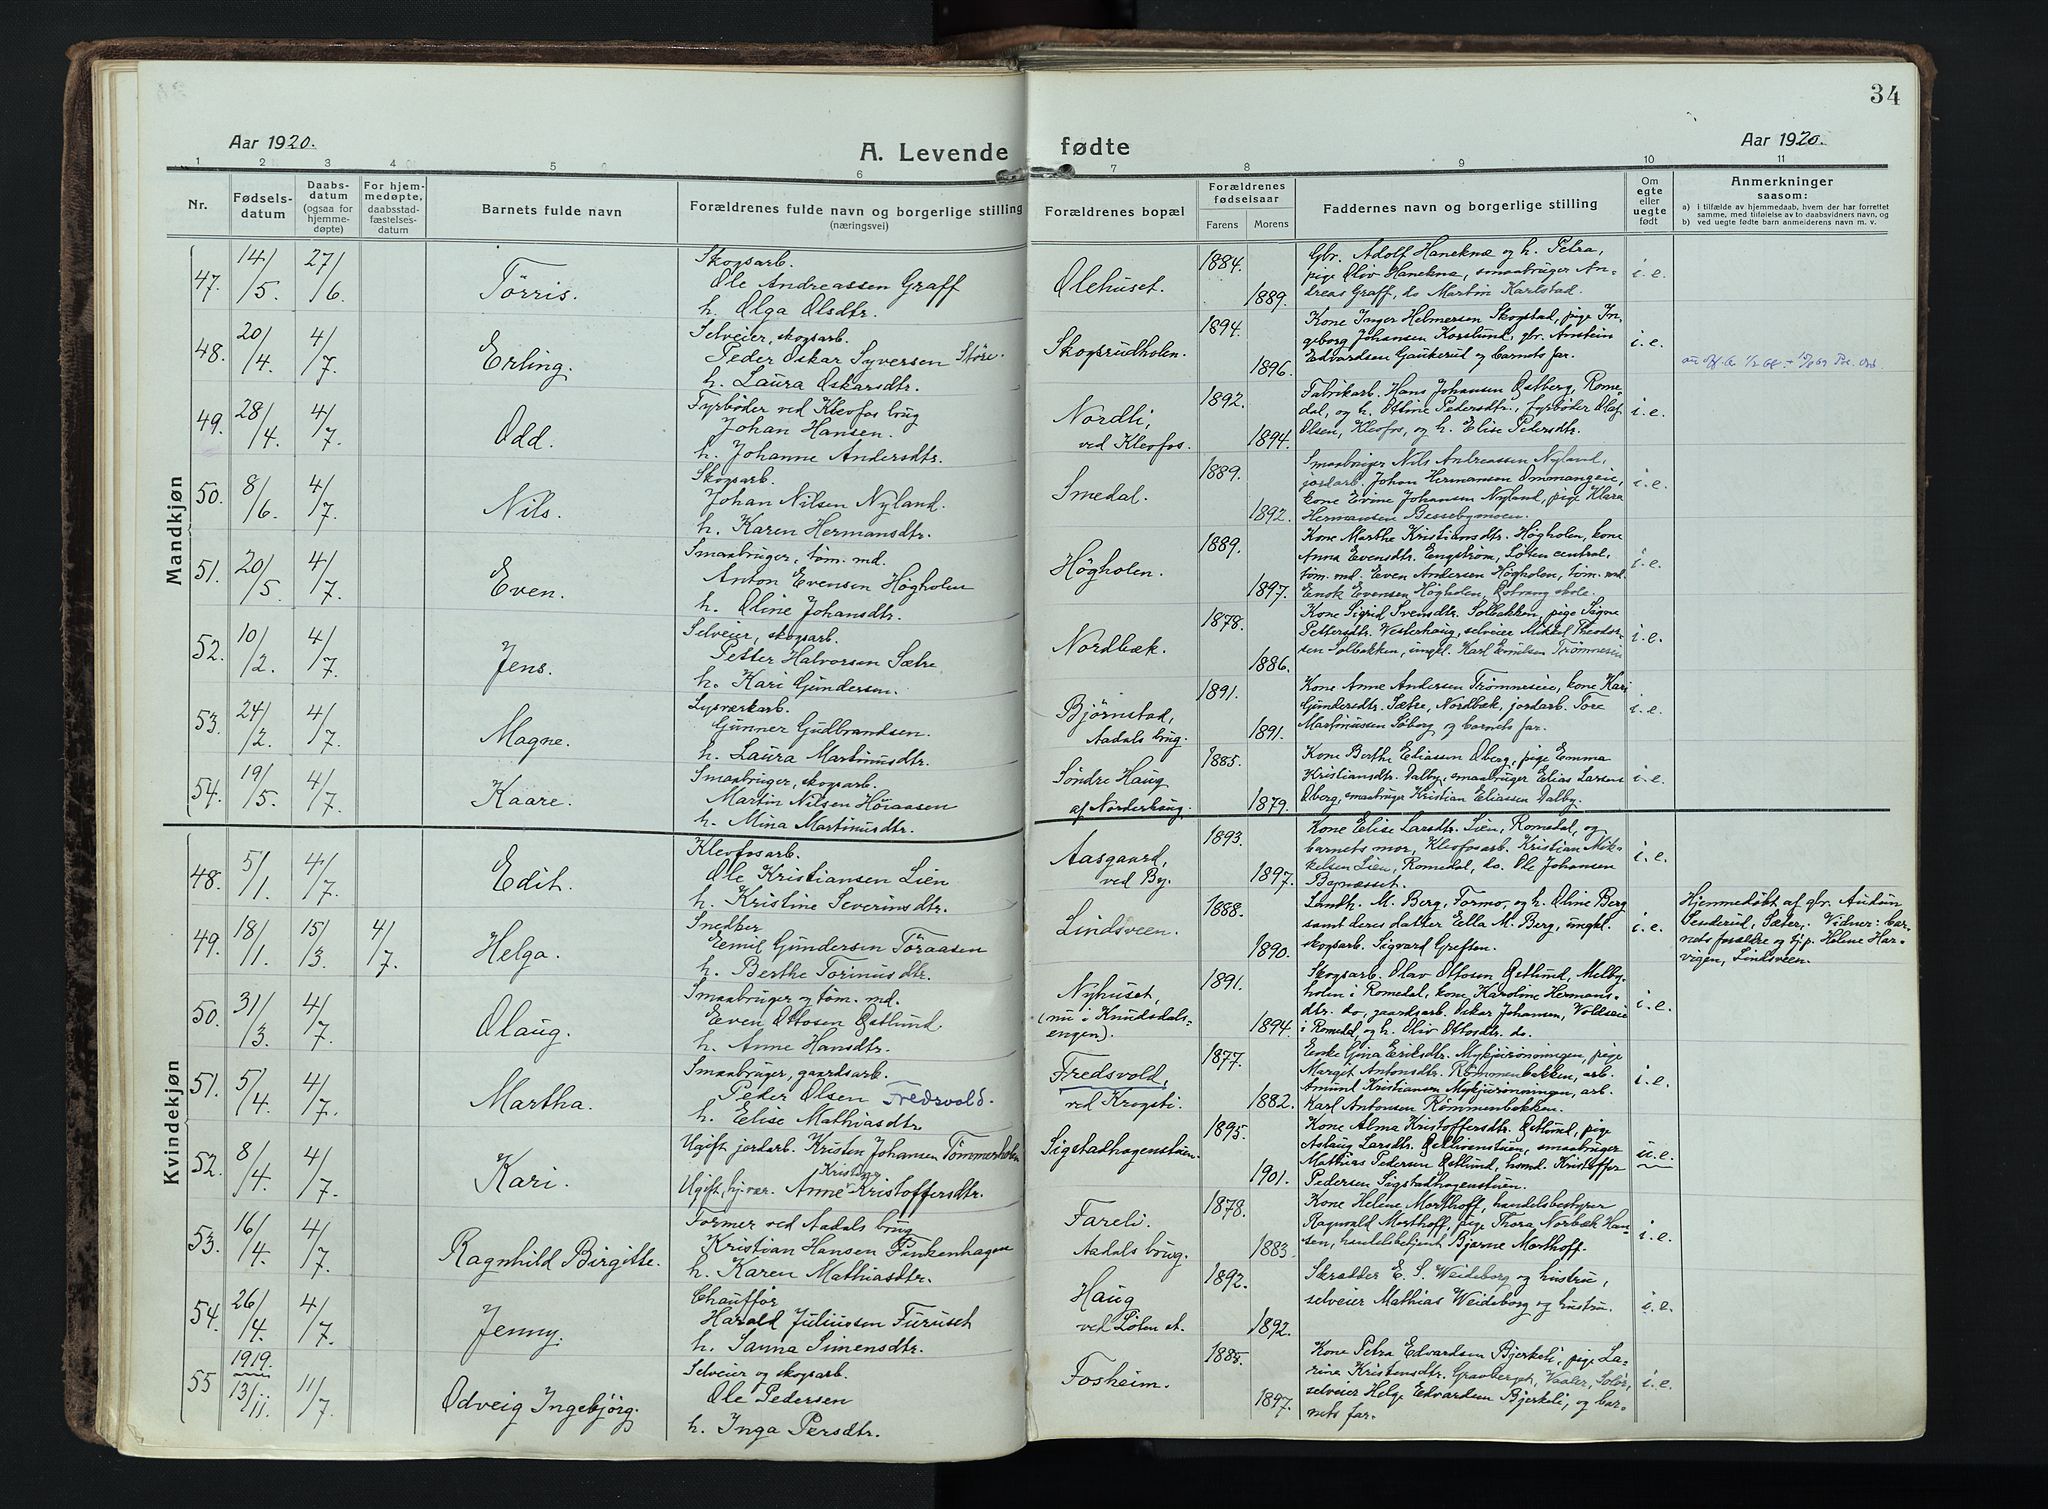 34
Aar 1920.
A. Levende fødte
Aar 1920.
1 2 3 4 5 6 7 8 9 10 11
Nr.
Fødsels-
datum
Daabs-
datum
(ogsaa for
hjemme-
døpte)
For hjem-
medøpte,
daabsstad-
fæstelses-
datum
Barnets fulde navn
Forældrenes fulde navn og borgerlige stilling
(næringsvei)
Forældrenes bopæl
Forældrenes
fødselsaar
Farens Morens
Faddernes navn og borgerlige stilling
Om
egte
eller
uegte
født
Anmerkninger
saasom:
a) i tilfælde av hjemmedaab, hvem der har forrettet
samme, med tilføielse av to daabsvidners navn, og
b) ved uegte fødte barn anmelderens navn m. v.
Mandkjøn
47. 14/5. 27/6 Tørris.
Skogsarb.
Ole Andreassen Graff
h. Olga Olsdtr.
Olehuset. 1884. 1889.
Gbr. Adolf Hanekne og h. Petra,
pige Oliv Hanekne, smaabruger An-
dreas Graff, do Martin Karlstad.
i. e.
48. 20/4. 4/7. Erling.
Selveier, skogsarb.
Peder Oskar Syversen Støre.
h. Laura Oskarsdtr.
Skogsrudholen. 1894. 1896.
Kone Inger Helmersen Skogstad, pige In-
geborg Johansen Korslund, gbr. Arnstein
Edvardsen Gaukerud og barnets far.
i. e.
49. 28/4. 4/7. Odd.
Fyrbøder ved Kleofos brug
Johan Hansen.
h. Johanne Andersdtr.
Nordli,
ved Kleofos. 1892. 1894.
Fabrikarb. Hans Johansen Østberg, Rome-
dal, og h. Otline Pedersdtr., fyrbøder Olaf
Olsen, Kleofos, og h. Elise Pedersdtr.
i. e.
50. 8/6. 4/7. Nils.
Skogsarb.
Johan Nilsen Nyland.
h. Karen Hermansdtr.
Smedal. 1889. 1892.
Smaabruger Nils Andreassen Nyland,
jordarb. Johan Hermansen Ommangeie,
kone Evine Johansen Nyland, pige Klara
Hermansen Bessebymoen.
i. e.
51. 20/5. 4/7. Even.
Smaabruger, tøm. md.
Anton Evensen Høgholen
h. Oline Johansdtr.
Høgholen. 1889. 1897.
Kone Marthe Kristiansdtr. Høgholen, kone
Anna Evensdtr. Engstrøm, Løten central,
tøm. md. Even Andersen Høgholen, tøm. md.
Enok Evensen Høgholen, skole.
i. e.
52. 10/2. 4/7. Jens.
Selveier, skogsarb.
Petter Halvorsen Sætre
h. Kari Gundersen.
Nordbæk. 1878. 1886.
Kone Sigrid Svensdtr. Solbakken, pige Signe
Pettersdtr. Westerhaug, selveier Mikkel Theodor-
sen Solbakken, ungkl. Karl Emilsen Trømneseie
i. e.
53. 24/2. 4/7. Magne.
Lysværkarb.
Gunner Gudbrandsen.
h. Laura Martinusdtr.
Bjørnstad,
Aadals brug. 1891. 1891.
Kone Anne Andersen Trømneseie, kone Kari
Gundersdtr. Sætre, Nordbæk, jordarb. Tore
Martinussen Søberg og barnets far.
i. e.
54. 19/5. 4/7. Kaare.
Smaabruger, skogsarb.
Martin Nilsen Høraasen
h. Mina Martinusdtr.
Søndre Haug
af Norderhaug. 1885. 1879.
Kone Berthe Eliassen Øberg, pige Emma
Kristiansdtr. Dalby, smaabruger Elias Larsen
Øberg, smaabruger Kristian Eliassen Dalby.
i. e.
Kvindekjøn
48. 5/1. 4/7. Edit.
Kleofosarb.
Ole Kristiansen Lien
h. Kristine Severinsdtr.
Aasgaard,
ved By. 1893. 1897.
Kone Elise Larsdtr. Lien, Romedal, og
barnets mor, Kleofosarb. Kristian Mik-
kelsen Lien, Romedal, do. Ole Johansen
Bynæsset.
i. e.
49. 18/11. 15/3. 4/7. Helga.
Snedker
Emil Gundersen Tøraasen
h. Berthe Torinusdtr.
Lindsveen. 1888. 1890.
Landh. M. Berg, Tormo, og h. Oline Berg
samt deres datter Ella M. Berg, ungkl.
skogsarb. Sigvard Greften.
i. e.
Hjemmedøbt af gbr. Audun
Senderud, Sæter. Vidner: bar-
nets forældre og tj.p. Helene Har-
vigen, Lindsveen.
50. 31/3. 4/7. Olaug.
Smaabruger og tøm. md.
Even Ottosen Østlund.
h. Anne Hansdtr.
Nyhuset,
(nu i Knudsdals-
engen). 1891. 1894.
Skogsarb. Olav Ottosen Østlund, Melby-
holen i Romedal, kone Karoline Hermans-
dtr. do, gaardsarb. Oskar Johansen, Voldseie
i Romedal, og h. Oliv Ottosdtr. do.
i. e.
51. 5/4. 4/7. Martha.
Smaabruger, gaardsarb.
Peder Olsen Fredsvold.
h. Elise Mathiasdtr
Fredsvold,
ved Krogsti. 1877. 1882.
Enke Gina Eriksdtr. Mykjurønningen, pige
Margit Antonsdtr. Rømmenbakken, arb.
Amund Kristiansen Mykjurønningen, arb.
Karl Antonsen Rømmenbakken.
i. e.
52. 8/4. 4/7. Kari.
Ugift jordarb. Kristen Johansen Tømmerholen
Ugift, hj.vær. Anne Kristine Kristoffersdtr.
Sigstadhagenstuen. 1895. 1901.
Kone Alma Kristoffersdtr. Østlund, pige
Aslaug Larsdtr. smaabruger
Mathias Pedersen Østlund, husmd. Kristoffer
Pedersen Sigstadhagenstuen.
u. e.
53. 16/4. 4/7. Ragnhild Birgitte.
Former ved Aadals brug
Kristian Hansen Finkenhagen
h. Karen Mathiasdtr.
Fareli.
Aadals brug. 1878. 1883.
Kone Helene Morthoff, handelsbestyrer
Ragnvald Morthoff, pige Thora Norbæk Han-
sen, handelsbetjent Bjarne Morthoff.
i. e.
54. 26/4. 4/7. Jenny.
Chauffør
Harald Juliussen Furuset
h. Sanna Simensdtr.
Haug
ved Løten st. 1892. 1892.
Skrædder E. S. Weideborg og hustru,
selveier Mathias Weideborg og hustru.
i. e.
55 1919. 13/11. 11/7. Odveig Ingebjørg.
Selveier og skogsarb.
Ole Pedersen
h. Inga Persdtr.
Fosheim. 1885. 1897.
Kone Petra Edvardsen Bjerkeli, pige La-
rina Kristensdtr. Gravberget, Vaaler, Solør,
selveier Helge Edvardsen Bjerkeli, og bar-
nets far.
i. e.